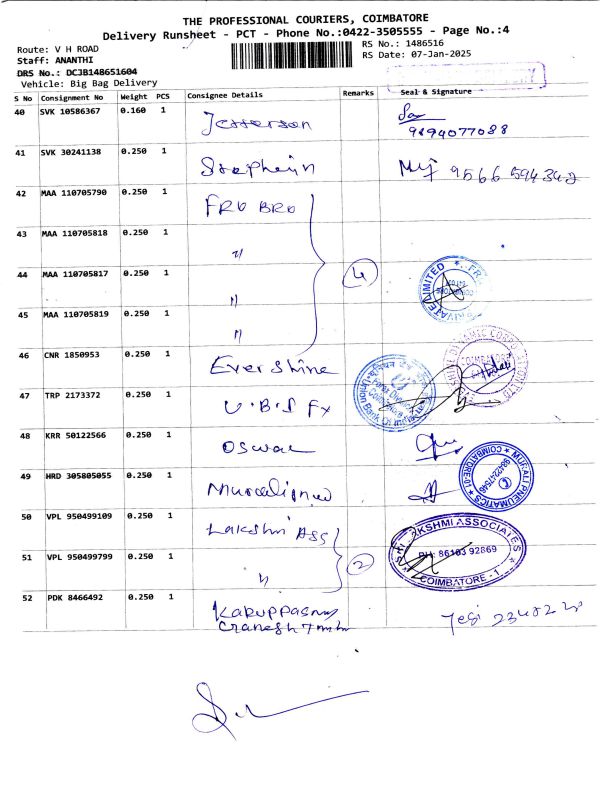 THE PROFESSIONAL COURIERS, COIMBATORE
Delivery Runsheet - PCT - Phone No.:0422-3505555 - Page No.:4
Route: V H ROAD
RS No.: 1486516
Staff: ANANTHI
RS Date: 07-Jan-2025
DRS No.: DCJB148651604
Vehicle: Big Bag Delivery
S No Consignment No Weight PCS Consignee Details Remarks Seal & Signature
40 SVK 10586367 0.160 1 Jefferson
9894077088
41 SVK 30241138 0.250 1 Stephen 9566594342
42 MAA 110705790 0.250 1 FRU BRU
43 MAA 110705818 0.250 1 "
44 MAA 110705817 0.250 1 " 4
45 MAA 110705819 0.250 1 "
46 CNR 1850953 0.250 1 Ever Shine
47 TRP 2173372 0.250 1 U.B.I FX
Union Bank
48 KRR 50122566 0.250 1 Oswal
49 HRD 305805055 0.250 1
MURALI PNEUMATICS
COIMBATORE-01
9842247546
50 VPL 950499109 0.250 1 Lakshmi Ass
51 VPL 950499799 0.250 1 " 2
LAKSHMI ASSOCIATES
PH: 86103 92869
COIMBATORE - 1
52 PDK 8466492 0.250 1 Karuppasamy